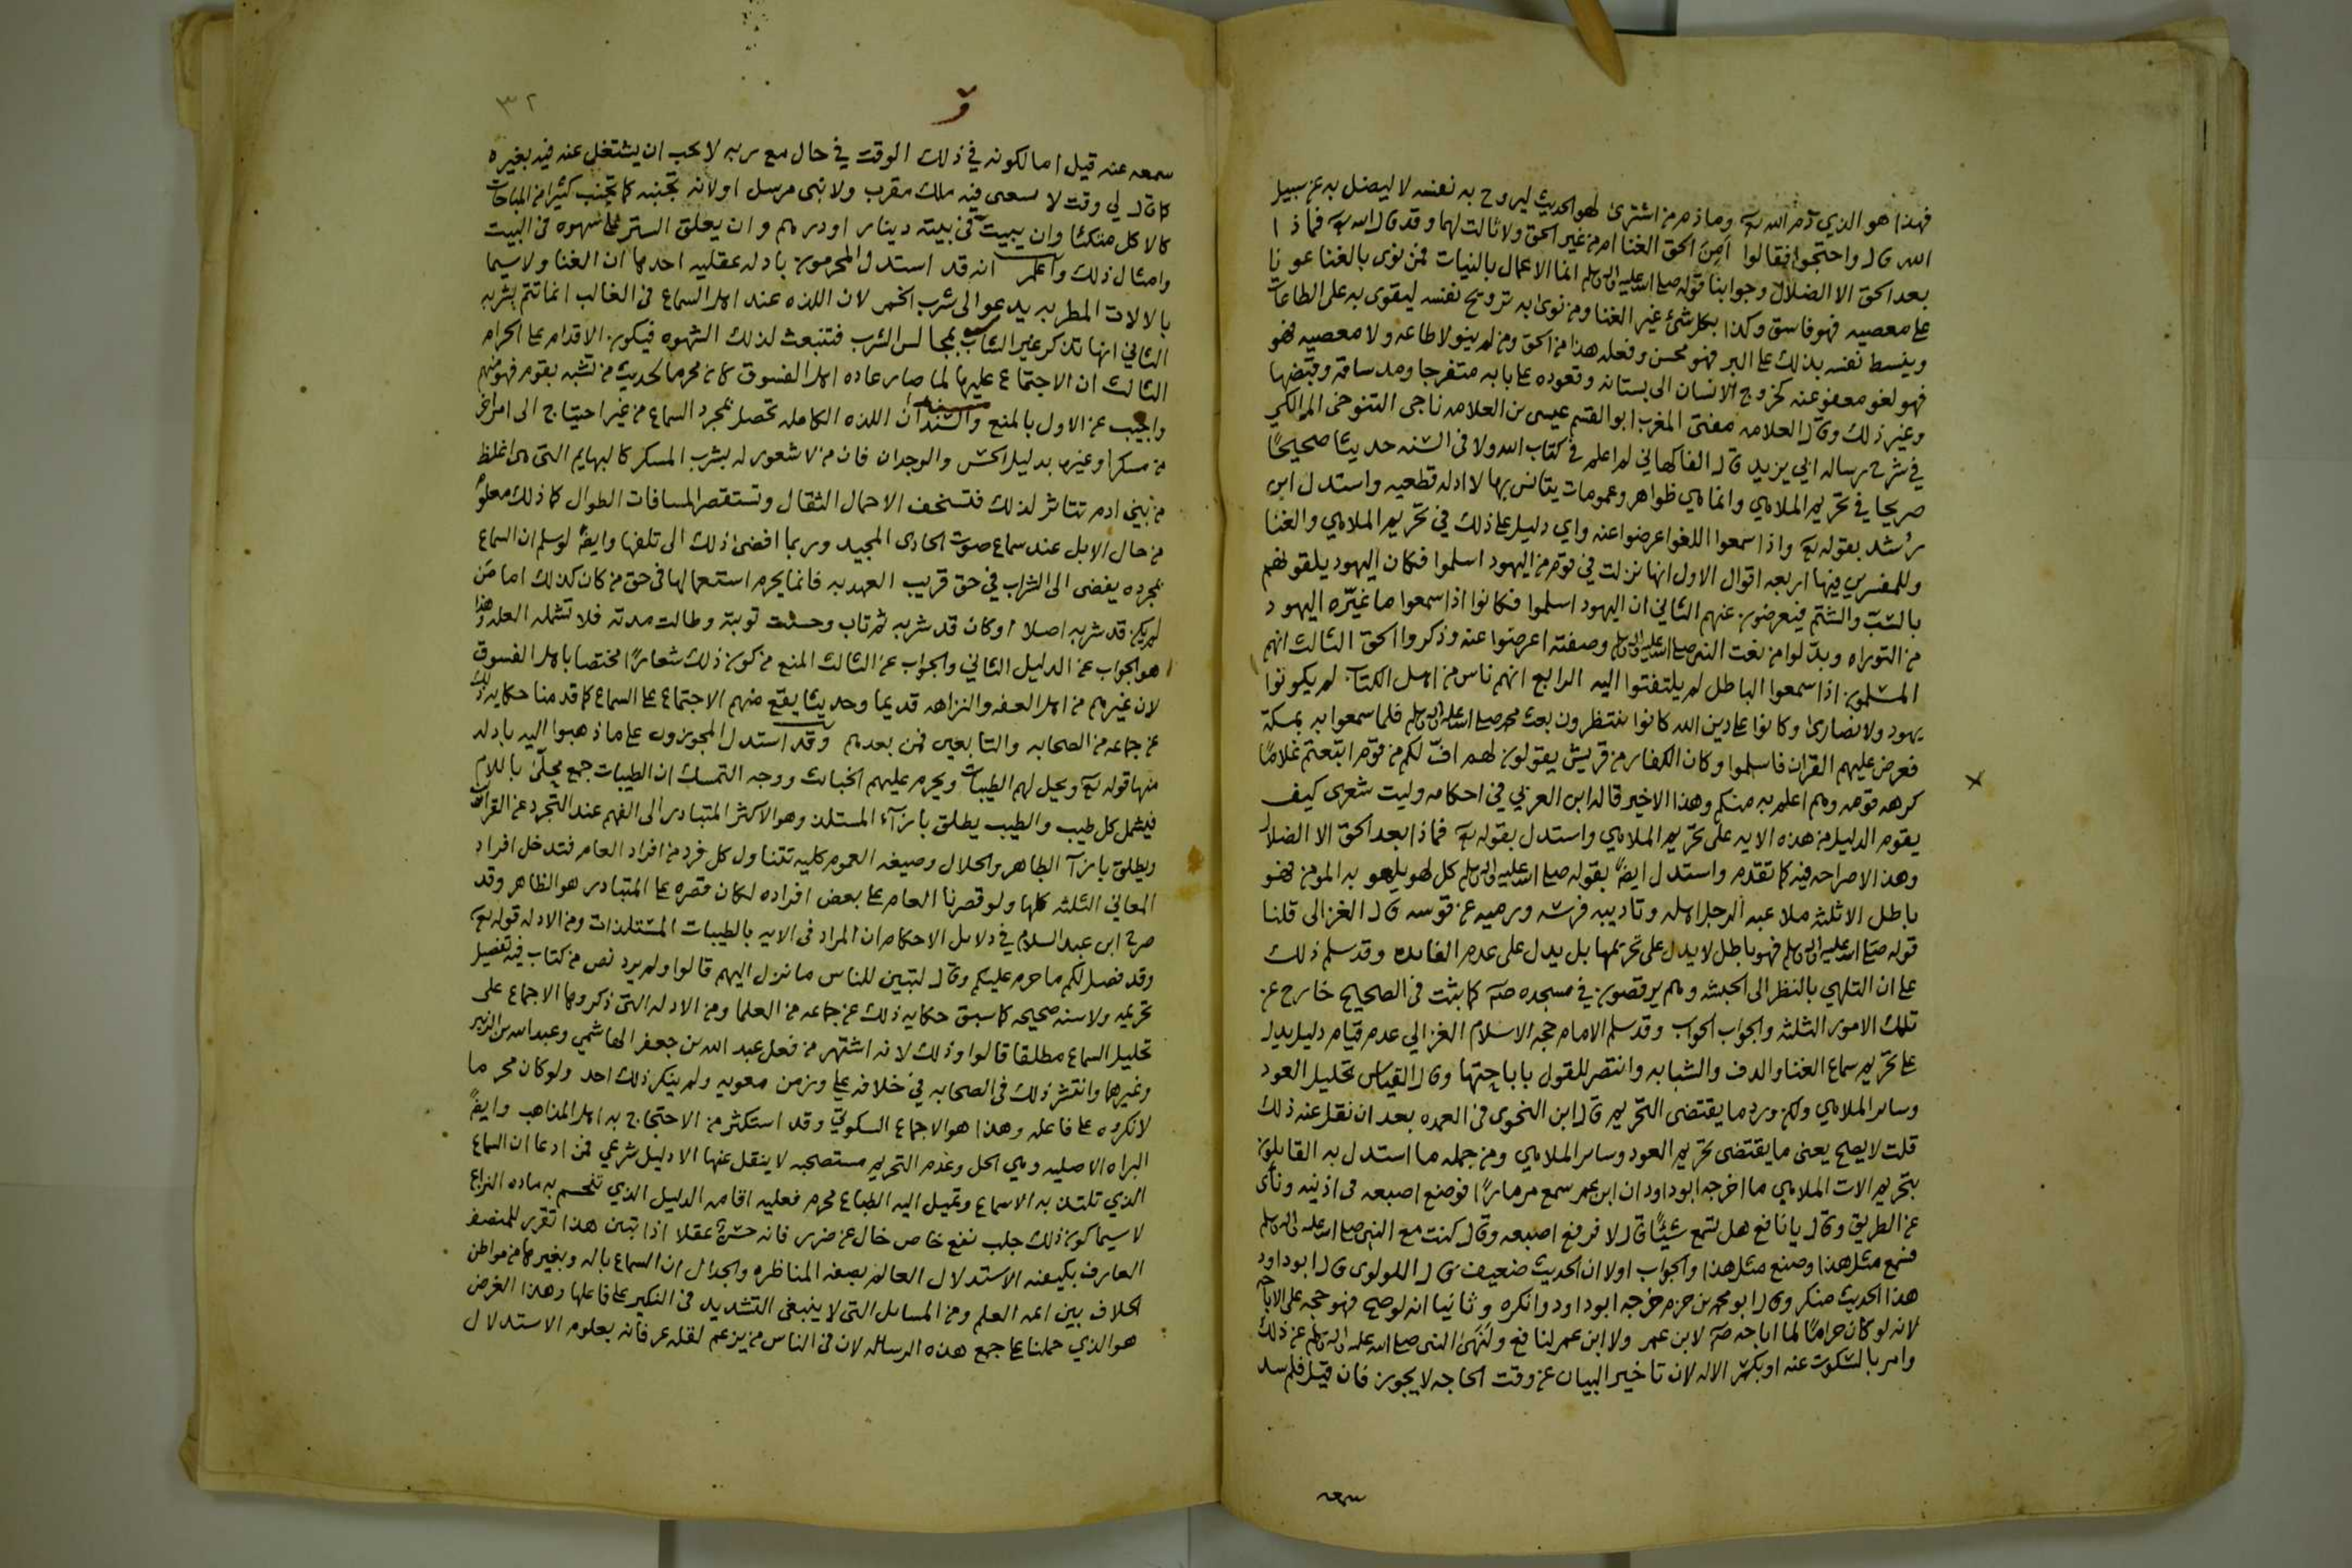 فهذا هو الذي ذمه الله تع وما ذم من اشترى لهو الحديث ليروح به نفسه لا ليضل به عن سبيل
الله قال واحتجوا فقالوا أمن الحق الغنا ام من غير الحق ولا ثالث لهما وقد قال الله تع فماذا
بعد الحق الا الضلال وجوابنا قوله صلى الله عليه واله وسلم انما الاعمال بالنيات فمن نوى بالغنا عونا
على معصيه فهو فاسق وكذا بكل شئ غير الغنا ومن نوى به ترويح نفسه ليقوى به على الطاعات
وينسط نفسه بذلك على البر فهو محسن وفعله هذا من الحق ومن لم ينو لا طاعه ولا معصيه فهو
فهو لغو معفو عنه كخروج الانسان الى بستانه وقعوده على بابه متفرجا ومد ساقه وقبضها
وغير ذلك وقال العلامه مفتى المغرب ابو القسم عيسى بن العلامه ناجى التنوخى المالكي
في شرح رساله ابي يزيد قال الفاكهاني لم اعلم في كتاب الله ولا في السنه حديثا صحيحا
صريحا في تحريم الملاهي وانما هي ظواهر وعمومات يتانس بها لا ادله قطعيه واستدل ابن
رشد بقوله تع واذا سمعوا اللغو اعرضوا عنه واي دليل على ذلك في تحريم الملاهي والغنا
وللمفسرين فيها اربعه اقوال الاول انها نزلت في قوم من اليهود اسلموا فكان اليهود يلقونهم
بالسب والشتم فيعرضون عنهم الثاني ان اليهود اسلموا فكانوا اذا سمعوا ما غيره اليهود
من التوراه وبدلوا من نعت النبي صلى الله عليه واله وسلم وصفته اعرضوا عنه وذكروا الحق الثالث انهم
المسلمون اذا سمعوا الباطل لم يلتفتوا اليه الرابع انهم ناس من اهل الكتاب لم يكونوا
يهود ولا نصارى وكانوا على دين الله كانوا ينتظرون بعث محمد صلى الله عليه واله وسلم فلما سمعوا به بمكة
فعرض عليهم القران فاسلموا وكان الكفار من قريش يقولون لهم اف لكم من قوم اتبعتم غلاما
كرهه قومه وهم اعلم به منكم وهذا الاخير قاله ابن العربي في احكامه وليت شعرى كيف
يقوم الدليل من هذه الايه على تحريم الملاهي واستدل بقوله تع فماذا بعد الحق الا الضلال
وهذا لا صراحه فيه كما تقدم واستدل ايضا بقوله صلى الله عليه واله وسلم كل لهو يلهو به المومن فهو
باطل الا ثلثه ملاعبه الرجل اهله وتاديبه فرسه ورميه عن قوسه قال الغزالى قلنا
قوله صلى الله عليه واله وسلم فهو باطل لا يدل على تحريمها بل يدل على عدم الفايده وقد سلم ذلك
على ان التلهي بالنظر الى الحبشه وهم يرقصون في مسجده صلم كما ثبت في الصحيح خارج عن
تلك الامور الثلثه والجواب الجواب وقد سلم الامام حجه الاسلام الغزالي عدم قيام دليل يدل
على تحريم سماع الغنا والدف والشبابه وانتصر للقول باباحتها وقال القياس تحليل العود
وساير الملاهي ولكن ورد ما يقتضى التحريم قال ابن النحوى في العمده بعد ان نقل عنه ذلك
قلت لا يصح يعنى ما يقتضى تحريم العود وساير الملاهي ومن جمله ما استدل به القايلون
بتحريم الات الملاهي ما اخرجه ابو داود ان ابن عمر سمع مزمارا فوضع اصبعه في اذنيه ونأى
عن الطريق وقال يا نافع هل تسمع شيئا قال لا فرفع اصبعه وقال كنت مع النبي صلى الله عليه واله وسلم
فسمع مثل هذا وصنع مثل هذا والجواب اولا ان الحديث ضعيف قال اللولوى قال ابو داود
هذا الحديث منكر وقال ابو محمد بن حزم خرجه ابو داود وانكره وثانيا انه لو صح فهو حجه على الاباحه
لانه لو كان حراما لما اباحه صلم لابن عمر ولا ابن عمر لنافع ولنهى النبي صلى الله عليه واله وسلم عن ذلك
وامر بالسكوت عنه او بكسر الاله لان تاخير البيان عن وقت الحاجه لا يجوز فان قيل فلم سد
سمعه
٣٢
سمعه عنه قيل اما لكونه في ذلك الوقت في حال مع ربه لا يحب ان يشتغل عنه فيه بغيره
كما قال لي وقت لا يسعنى فيه ملك مقرب ولا نبى مرسل او لانه تجنبه كما تجنب كثيرا من المباحات
كالاكل متكئا وان يبيت في بيته دينار او درهم وان يعلق الستر على سهوه في البيت
وامثال ذلك واعلم انه قد استدل المحرمون بادله عقليه احدها ان الغنا ولا سيما
بالالات المطربه يدعو الى شرب الخمر لان اللذه عند اهل السماع في الغالب انما تتم بشربه
الثاني انها تذكر غير الشارب بمجالس الشرب فتنبعث لذلك الشهوه فيكون الاقدام على الحرام
الثالث ان الاجتماع عليها لما صار عاده اهل الفسوق كان محرما لحديث من تشبه بقوم فهو منهم
واجيب عن الاول بالمنع والسند ان اللذه الكامله تحصل بمجرد السماع من غير احتياج الى امر اخر
من مسكر او غيره بدليل الحس والوجدان فان من لا شعور له بشرب المسكر كالبهايم التي هي اغلظ
من بني ادم تتاثر لذلك فتستخف الاحمال الثقال وتستقصر المسافات الطوال كما ذلك معلوم
من حال الابل عند سماع صوت الحادى المجيد وربما افضى ذلك الى تلفها وايضا لو سلم ان السماع
بمجرده يفضى الى الشراب في حق قريب العهد به فانما يحرم استعمالها في حق من كان كذلك اما من
لم يكن قد شربه اصلا او كان قد شربه ثم تاب وحسنت توبته وطالت مدته فلا تشمله العله وهذا
هو الجواب عن الدليل الثاني والجواب عن الثالث المنع من كون ذلك شعارا مختصا باهل الفسوق
لان غيرهم من اهل العفه والنزاهه قديما وحديثا يقع منهم الاجتماع على السماع كما قدمنا حكايه ذلك
عن جماعه من الصحابه والتابعين فمن بعدهم وقد استدل المجوزون على ما ذهبوا اليه بادله
منها قوله تع ويحل لهم الطيبات ويحرم عليهم الخبائث ووجه التمسك ان الطيبات جمع محلى باللام
فيشمل كل طيب والطيب يطلق بازآء المستلذ وهو الاكثر المتبادر الى الفهم عند التجرد عن القرآن
ويطلق بازآ الطاهر والحلال وصيغه العموم كليه تتناول كل فرد من افراد العام فتدخل افراد
المعاني الثلثه كلها ولو قصرنا العام على بعض افراده لكان قصره على المتبادر هو الظاهر وقد
صرح ابن عبد السلام في دلايل الاحكام ان المراد في الايه بالطيبات المستلذات ومن الادله قوله تع
وقد فصل لكم ما حرم عليكم وقال لتبين للناس ما نزل اليهم قالوا ولم يرد نص من كتاب فيه تفصيل
تحريمه ولا سنه صحيحه كما سبق حكايه ذلك عن جماعه من العلما ومن الادله التى ذكروها الاجماع على
تحليل السماع مطلقا قالوا وذلك لانه اشتهر من فعل عبد الله بن جعفر الهاشمي وعبد الله بن الزبير
وغيرها وانتشر ذلك في الصحابه في خلافه علي وزمن معويه ولم ينكر ذلك احد ولو كان محرما
لانكروه على فاعله وهذا هو الاجماع السكوتي وقد استكثر من الاحتجاج به اهل المذاهب وايضا
البراه الاصليه وهي الحل وعدم التحريم مستصحبه لا ينقل عنها الا دليل شرعي فمن ادعا ان السماع
الذي تلتذ به الاسماع وتميل اليه الطباع محرم فعليه اقامه الدليل الذي تنحسم به ماده النزاع
لا سيما كون ذلك جلب نفع خاص خال عن ضرر فانه حسن عقلا اذا تبين هذا تقرر للمنصف
العارف بكيفيه الاستدلال العالم بصفه المناظره والجدال ان السماع باله وبغيرها من مواطن
الخلاف بين ائمه العلم ومن المسايل التى لا ينبغى التشديد في النكير على فاعلها وهذا الغرض
هو الذي حملنا على جمع هذه الرساله لان في الناس من يزعم لقله عرفانه بعلوم الاستدلال